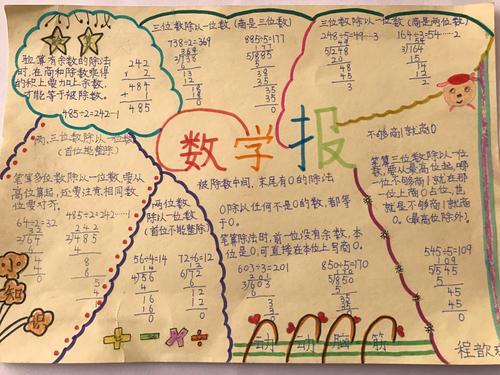 验算有余数的除法
时,在商和除数乘得
的积上要加上余数,
才能等于被除数。
242
× 2
484
+ 1
485
485÷2=242…1
三位数除以一位数(商是三位数)
738÷2=369
885÷5=177
三位数除以一位数(商是两位数)
248÷5=49…3
164÷3=54…2
数学报
两、三位数除以一位数
(首位能整除)
笔算多位数除以一位数,要从
高位算起,还要注意相同数
位要对齐。
64÷2=32
485÷2=242…1
两位数
除以一位数
(首位不能整除)
56÷4=14
72÷6=12
被除数中间、末尾有0的除法
0除以任何不是0的数,都等
于0。
笔算除法时,前一位没有余数,本
位是0,可直接在本位上写商0。
603÷3=201
850÷5=170
不够商1就商0
笔算三位数除以一位
数,要从最高位起,哪
一位不够商1就在那
一位上商0占位,也
就是不够商1就商
0。(最高位除外)。
545÷5=109
动动脑筋
程歆